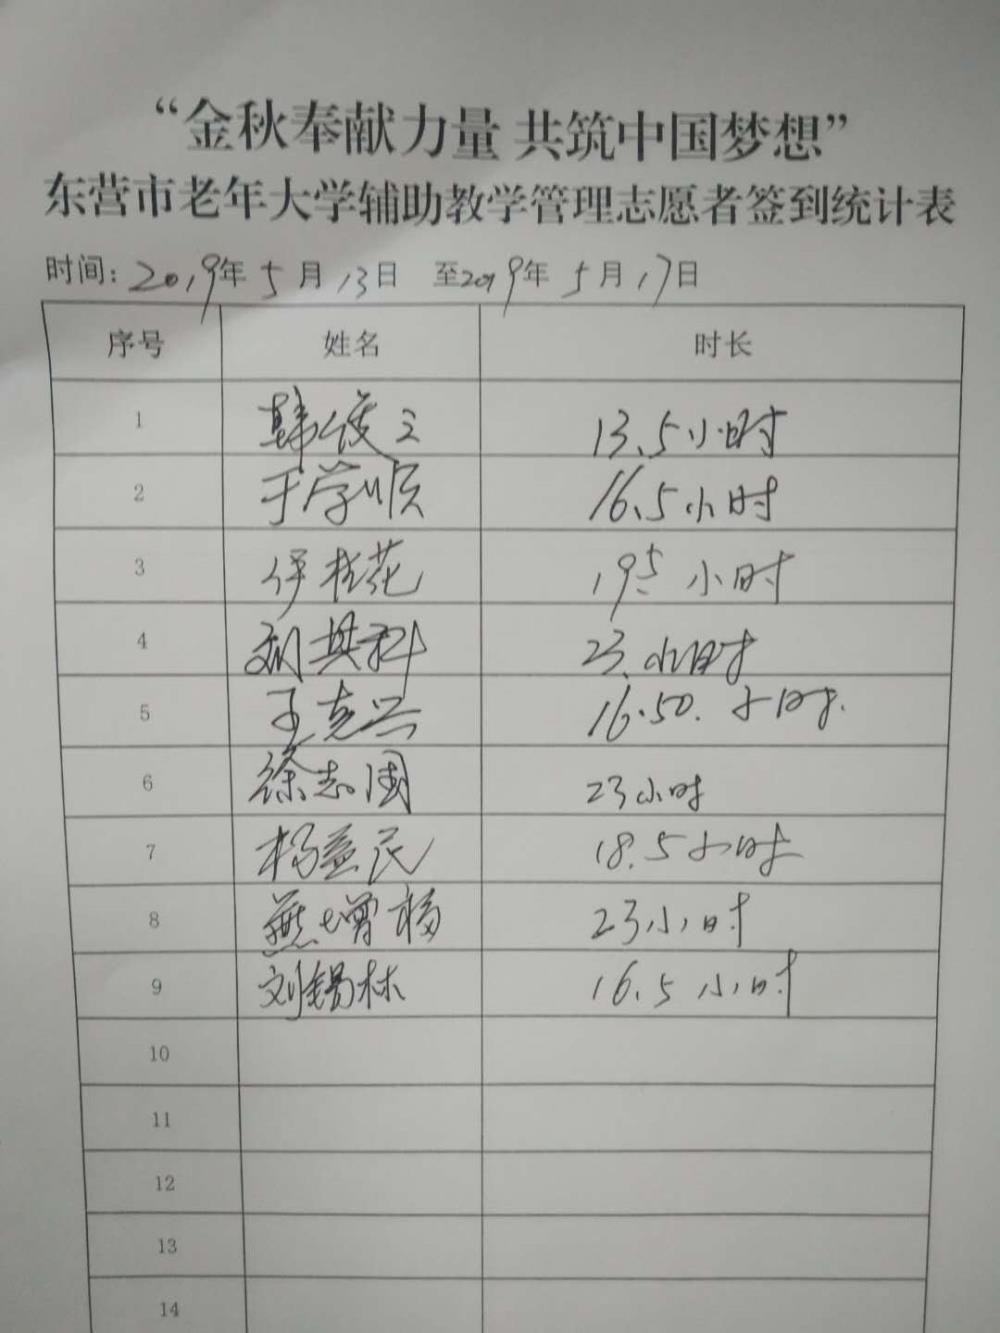 “金秋奉献力量 共筑中国梦想”
东营市老年大学辅助教学管理志愿者签到统计表
时间: 2019年 5月 13日 至2019年 5月 17日
序号 姓名 时长
1 韩俊之 13.5小时
2 于学顺 16.5小时
3 伊桂花 19.5小时
4 刘其科 23小时
5 王克兴 16.50.小时.
6 徐志国 23小时
7 杨益民 18.5小时
8 燕增福 23小时
9 刘锡林 16.5小时
10
11
12
13
14